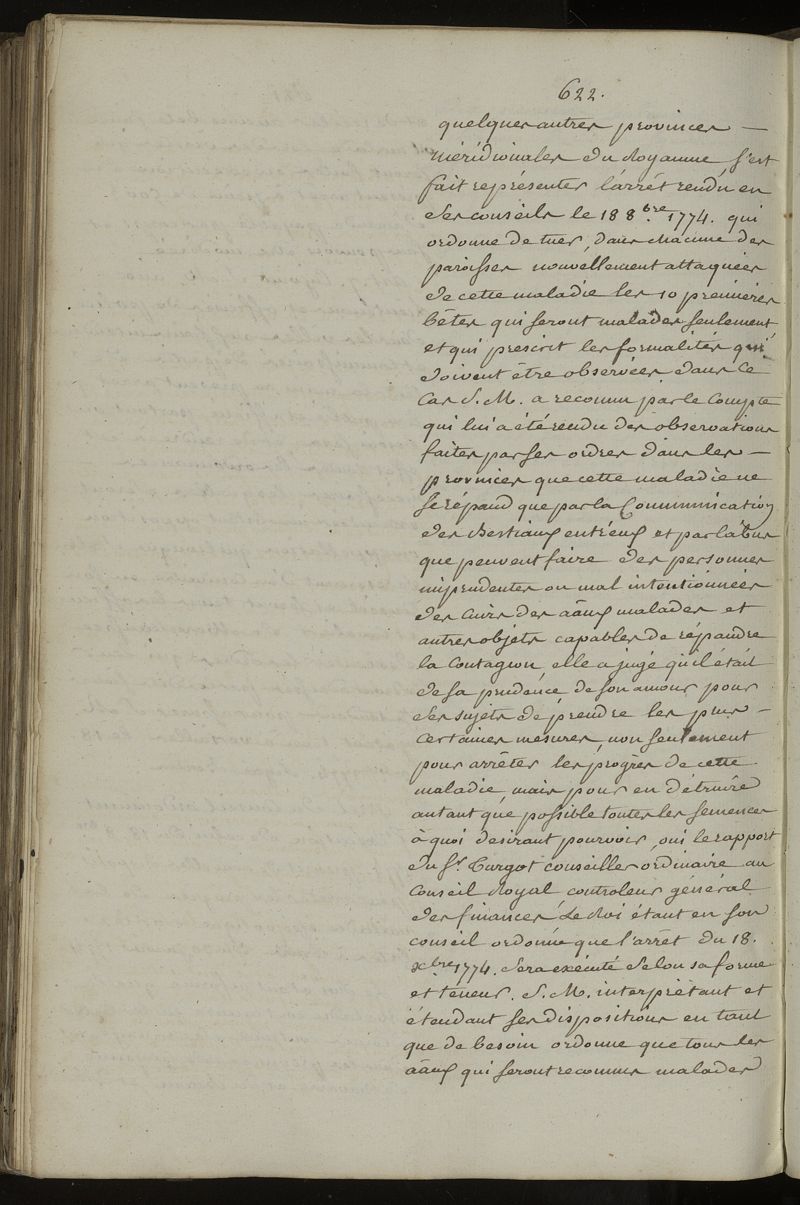 622.
quelques autres provinces —
méridionales du Royaume s'est
fait représenter l'arrêt rendu en
ses conseils le 18 8.bre 1774. qui
ordonne de tuer, dans chacune des
paroisses nouvellement attaquées
de cette maladie les 10 premières
bêtes qui seront malades seulement
et qui prescrit les formalités qui
doivent être observées dans ce
Cas S. M. a reconnu par le Compte
qui lui a été rendu des observations
faites par ses ordres dans les —
provinces que cette maladie ne
se répand que par la Communication
des Bestiaux entr'eux et par l'abus
que peuvent faire des personnes
imprudentes ou mal intentionnées
des Cuirs des aãux malades et
autres objets capables de répandre
la Contagion elle a jugé qu'il était
de sa prudence de son amour pour
ses sujets de prendre les plus —
certaines mesures, non seulement
pour arrêter les progrès de cette
maladie, mais pour en détruire
autant que possible toutes les semences
à quoi desirant pourvoir, oui le rapport
du Sr. Turgot conseiller ordinaire au
Conseil Royal controleur général
des finances, Le Roi étant en son
conseil ordonne que l'arrêt du 18.
xbre 1774. sera exécuté selon sa forme
et teneur. S. M. interprétant et
étendant ses dispositions en tant
que de besoin ordonne que tous les
aãux qui seront reconnus malades